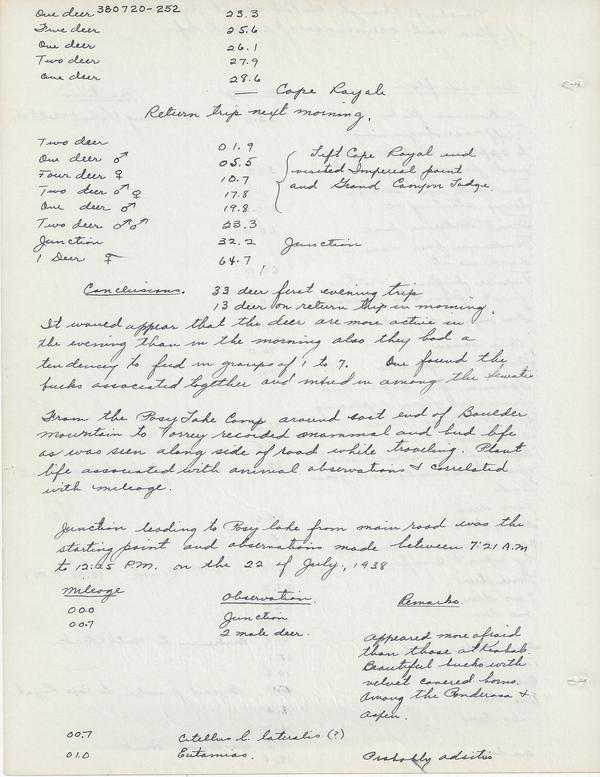 380720-252
One deer 23.3
Five deer 25.6
One deer 26.1
Two deer 27.9
One deer 28.6
— Cape Royale
Return trip next morning.
Two deer 01.9
One deer ♂ 05.5
Four deer ♀ 10.7
Two deer ♂ ♀ 17.8
One deer ♂ 19.8
Left Cape Royal and
visited Imperial point
and Grand Canyon Lodge.
Two deer ♂♂ 23.3
Junction 32.2 Junction
1 Deer ♀ 64.7
Conclusions. 33 deer first evening trip
13 deer on return trip in morning.
It would appear that the deer are more active in
the evening than in the morning also they had a
tendency to feed in groups of 1 to 7. One found the
bucks associated together and mixed in among the
From the Posy Lake Camp around east end of Boulder
mountain to Torrey recorded mammal and bird life
as was seen along side of road while traveling. Plant
life associated with animal observations & correlated
with mileage.
Junction leading to Posy lake from main road was the
starting point and observations made between 7:21 A.M
to 12:25 P.M. on the 22 of July, 1938
Mileage Observation. Remarks.
00.0 Junction
00.7 2 male deer. Appeared more afraid
than those at Kiabab.
Beautiful bucks with
velvet covered horns.
Among the Ponderosa &
Aspen.
00.7 Citellus l. lateralis (?)
01.0 Eutamias. Probably adsitus